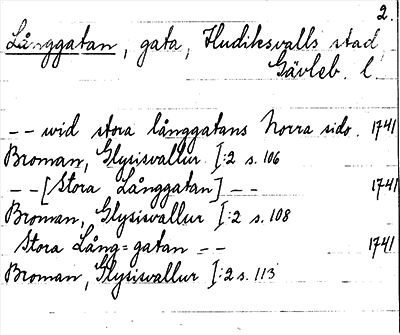 2.
Långgatan, gata, Hudiksvalls stad
Gävleb. l.
-- wid stora långgatans Norra sido. 1741
Broman, Glysisvallur I:2 s. 106
-- [Stora Långgatan] -- 1741
Broman, Glysisvallur I:2 s. 108
Stora Lång=gatan -- 1741
Broman, Glysisvallur I:2 s. 113